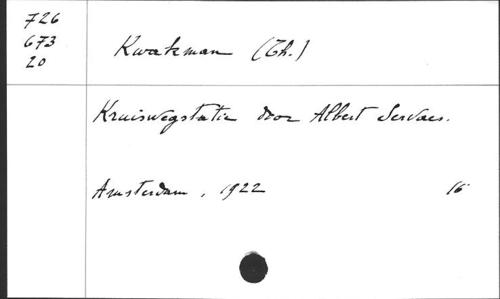 726
673
20
Kwakman (Th.)
Kruiswegstatie door Albert Servaes.
Amsterdam, 1922
16°